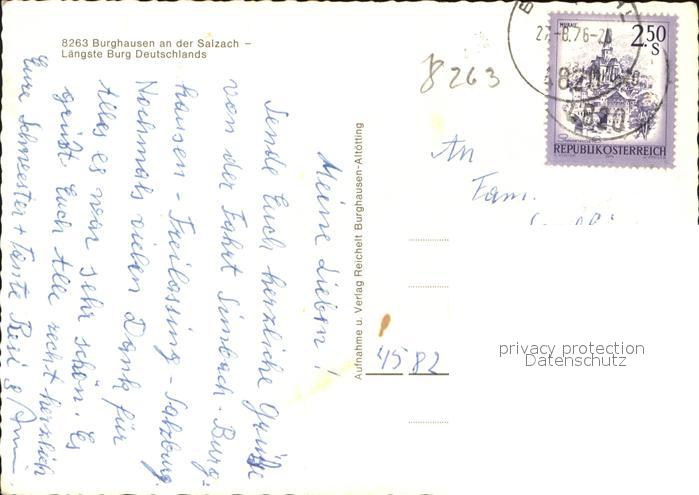 8263 Burghausen an der Salzach –
Längste Burg Deutschlands
Meine Lieben!
Sende Euch herzliche Grüße
von der Fahrt Simbach-Burg-
hausen - Freilassing - Salzburg.
Nochmals vielen Dank für
Alles es war sehr schön. Es
grüßt Euch Alle recht herzlich
Eure Schwester + Tante Resi
Aufnahme u. Verlag Reichelt Burghausen-Altötting
8263
27.-8.76-
MURAU
2.50
S
REPUBLIK ÖSTERREICH
An
Fam.
4582
privacy protection
Datenschutz